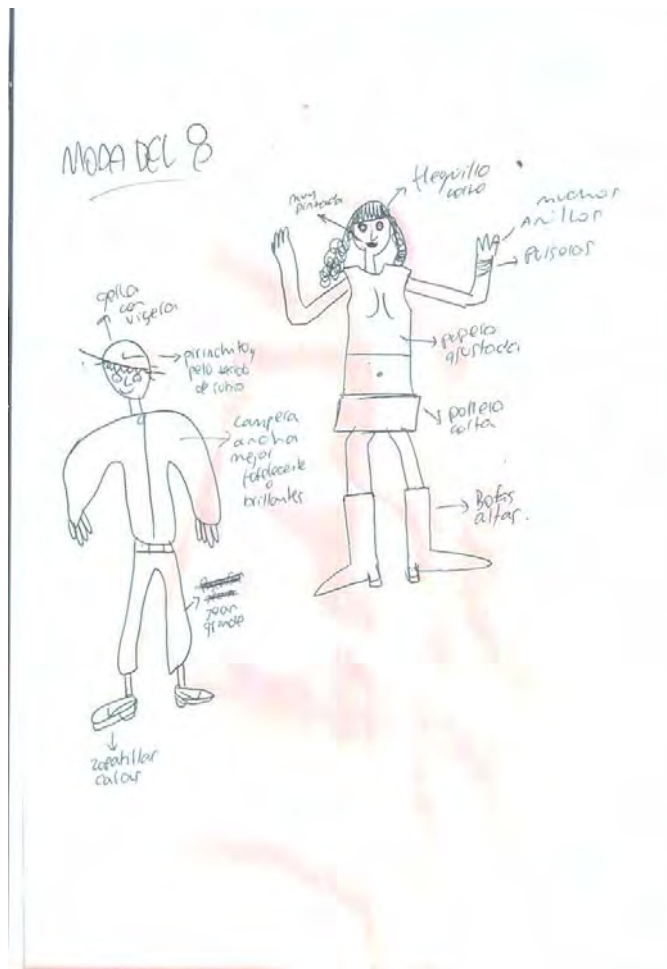 MODA DEL 8
muy
pintada
flequillo
corto
muchos
Anillos
pulseras
pupera
ajustada
pollera
corta
Botas
altas.
gorra
con
visera
pirinchitos,
pelo teñido
de rubio
campera
ancha
mejor
fosforecente
o
brillantes
Jean
grande
zapatillas
caras